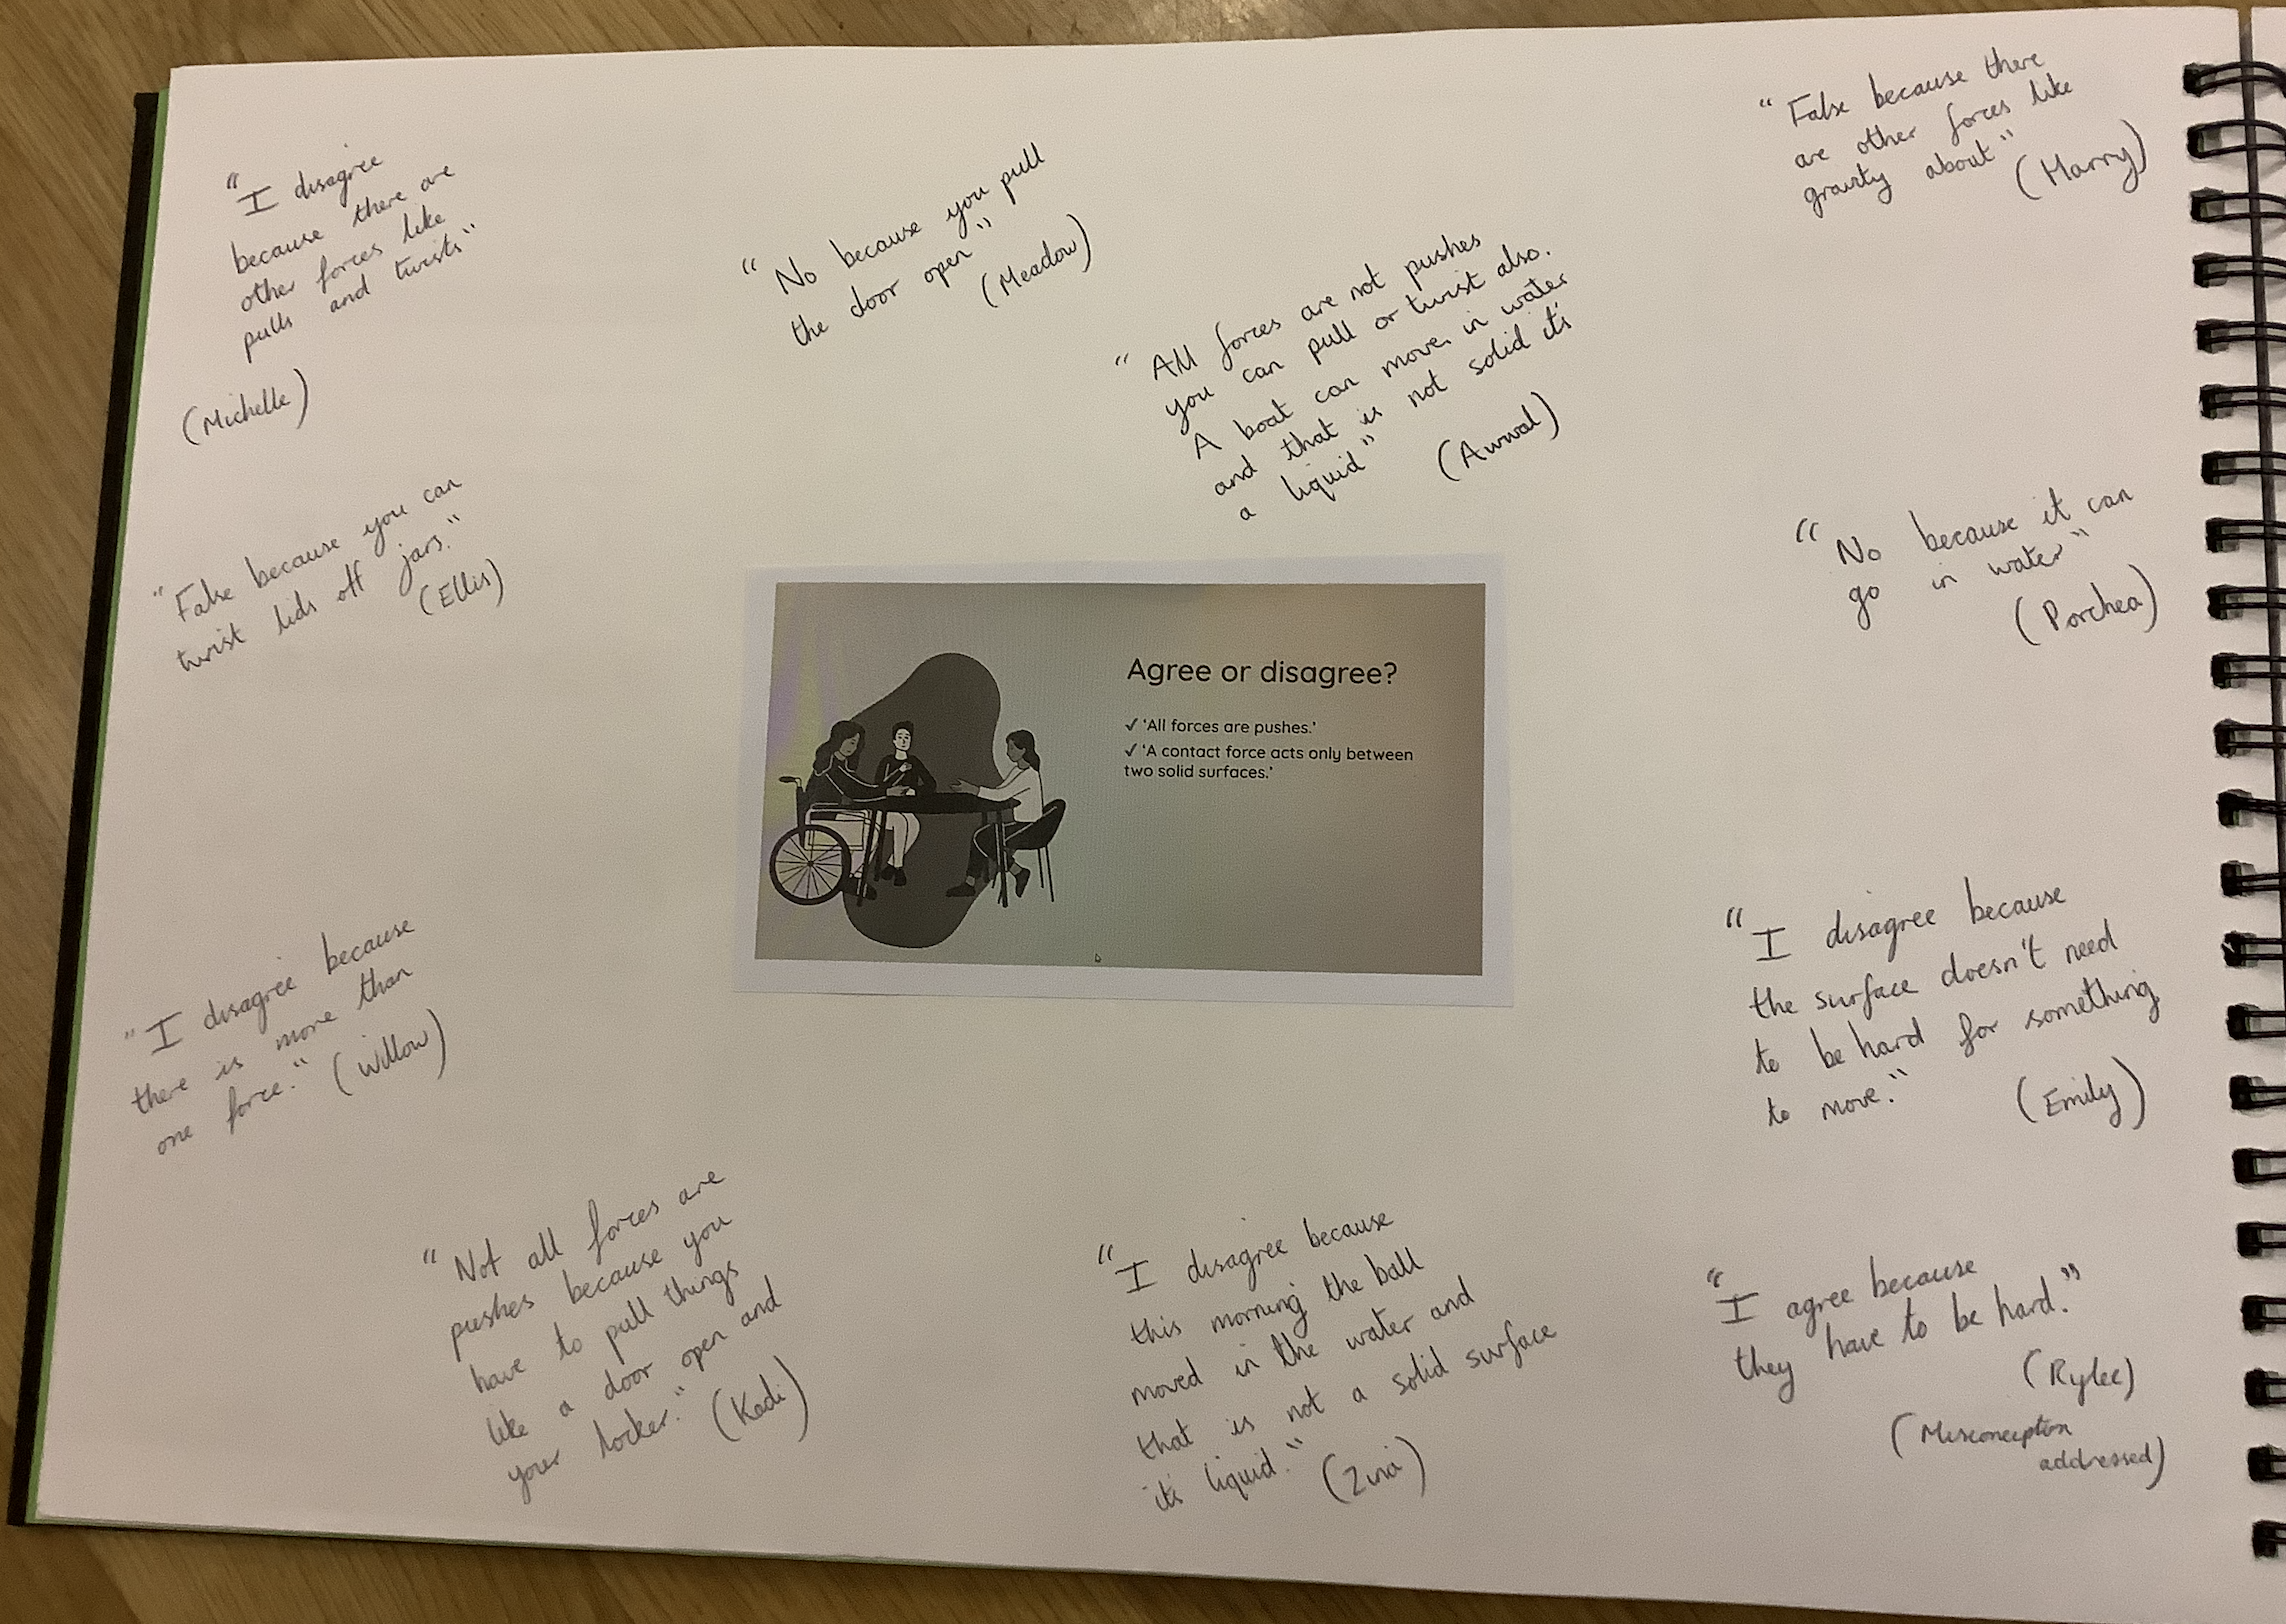 "I disagree
because there are
other forces like
pulls and twists"
(Michelle)
"No because you pull
the door open"
(Meadow)
"All forces are not pushes
you can pull or twist also.
A boat can move in water
and that is not solid its
a liquid"
(Awwal)
"False because there
are other forces like
gravity about"
(Harry)
"False because you can
twist lids off jars."
(Ellis)
"No because it can
go in water"
(Porchea)
Agree or disagree?
✓ 'All forces are pushes.'
✓ 'A contact force acts only between
two solid surfaces.'
"I disagree because
there is more than
one force." (Willow)
"I disagree because
the surface doesn't need
to be hard for something
to move."
(Emily)
"Not all forces are
pushes because you
have to pull things
like a door open and
your locker." (Kadi)
"I disagree because
this morning the ball
moved in the water and
that is not a solid surface
its liquid." (Zina)
"I agree because
they have to be hard."
(Rylee)
(Misconception
addressed)